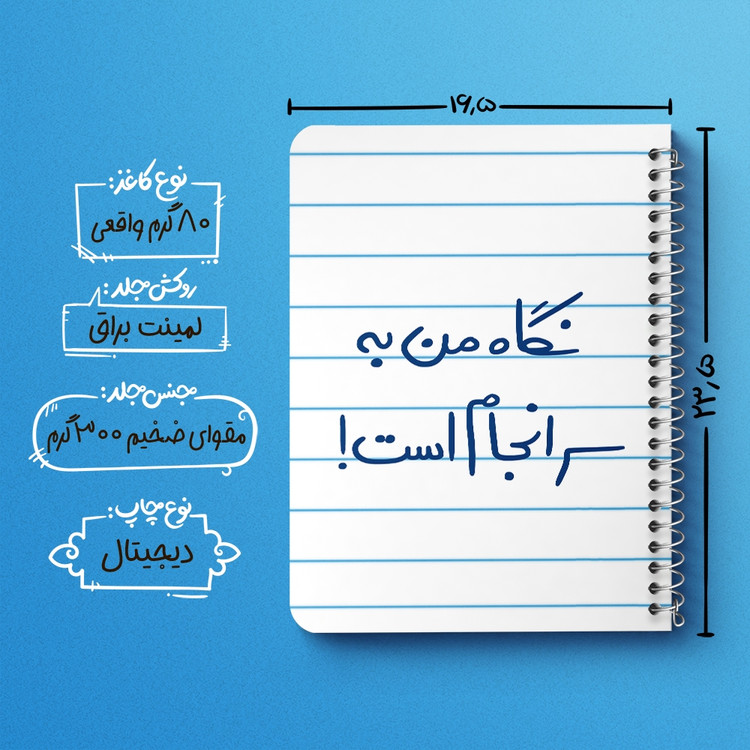 ۱۹٫۵
نوع کاغذ:
۸۰ گرم واقعی
روکش جلد:
لمینت براق
جنس جلد:
مقوای ضخیم ۳۰۰ گرم
نوع چاپ:
دیجیتال
نگاه من به
سرانجام است!
۲۳٫۵